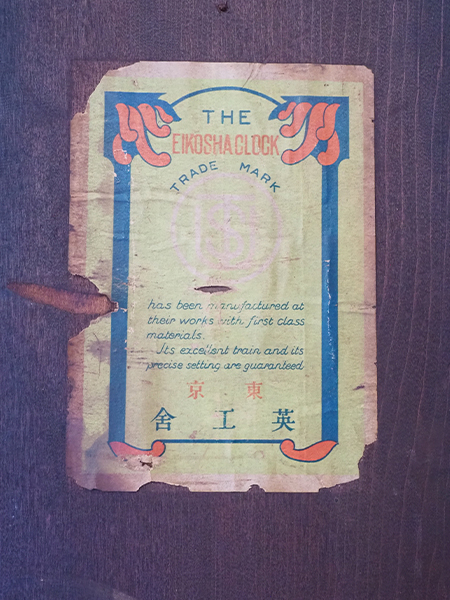 THE
EIKOSHA CLOCK
TRADE MARK
has been manufactured at
their works with first class
materials.
Its excellent train and its
precise setting are guaranteed
京 東
舍 工 英